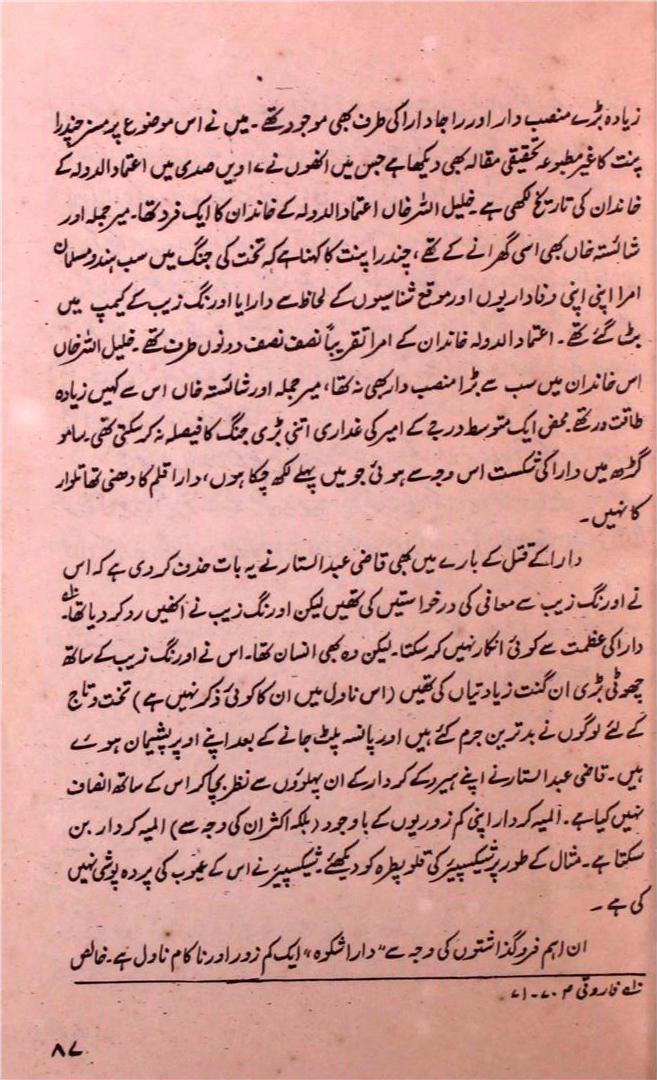 زیادہ بڑے منصب دار اور راجا دارا کی طرف بھی موجود تھے۔ میں نے اس موضوع پر مسز چندرا
پنت کا غیر مطبوعہ تحقیقی مقالہ بھی دیکھا ہے جس میں انھوں نے ۱۷ ویں صدی میں اعتماد الدولہ کے
خاندان کی تاریخ لکھی ہے۔ خلیل اللہ خاں اعتماد الدولہ کے خاندان کا ایک فرد تھا۔ میر جملہ اور
شائستہ خاں بھی اسی گھرانے کے تھے، چندرا پنت کا کہنا ہے کہ تخت کی جنگ میں سب ہندو مسلمان
امرا اپنی اپنی وفاداریوں اور موقع شناسیوں کے لحاظ سے دارا یا اورنگ زیب کے کیمپ میں
بٹ گئے تھے۔ اعتماد الدولہ خاندان کے امرا تقریباً نصف نصف دونوں طرف تھے۔ خلیل اللہ خاں
اس خاندان میں سب سے بڑا منصب دار بھی نہ تھا، میر جملہ اور شائستہ خاں اس سے کہیں زیادہ
طاقت ور تھے۔ محض ایک متوسط درجے کے امیر کی غداری اتنی بڑی جنگ کا فیصلہ نہ کر سکتی تھی۔ سامو
گڑھ میں دارا کی شکست اس وجہ سے ہوئی جو میں پہلے لکھ چکا ہوں، دارا قلم کا دھنی تھا تلوار
کا نہیں۔
دارا کے قتل کے بارے میں بھی قاضی عبدالستار نے یہ بات حذف کر دی ہے کہ اس
نے اورنگ زیب سے معافی کی درخواستیں کی تھیں لیکن اورنگ زیب نے انھیں رد کر دیا تھا۔
دارا کی عظمت سے کوئی انکار نہیں کر سکتا۔ لیکن وہ بھی انسان تھا۔ اس نے اورنگ زیب کے ساتھ
چھوٹی بڑی ان گنت زیادتیاں کی تھیں (اس ناول میں ان کا کوئی ذکر نہیں ہے) تخت و تاج
کے لئے لوگوں نے بدترین جرم کئے ہیں اور پانسہ پلٹ جانے کے بعد اپنے اوپر پشیمان ہوئے
ہیں۔ قاضی عبدالستار نے اپنے ہیرو کے کردار کے ان پہلوؤں سے نظر بچا کر اس کے ساتھ انصاف
نہیں کیا ہے۔ المیہ کردار اپنی کم زوریوں کے باوجود (بلکہ اکثر ان کی وجہ سے) المیہ کردار بن
سکتا ہے۔ مثال کے طور پر شیکسپیئر کی قلوپطرہ کو دیکھئے۔ شیکسپیئر نے اس کے عیوب کی پردہ پوشی نہیں
کی ہے۔
ان اہم فروگذاشتوں کی وجہ سے "دارا شکوہ" ایک کم زور اور ناکام ناول ہے۔ خالص
فاروقی ص ۷۰-۷۱۔
۸۷